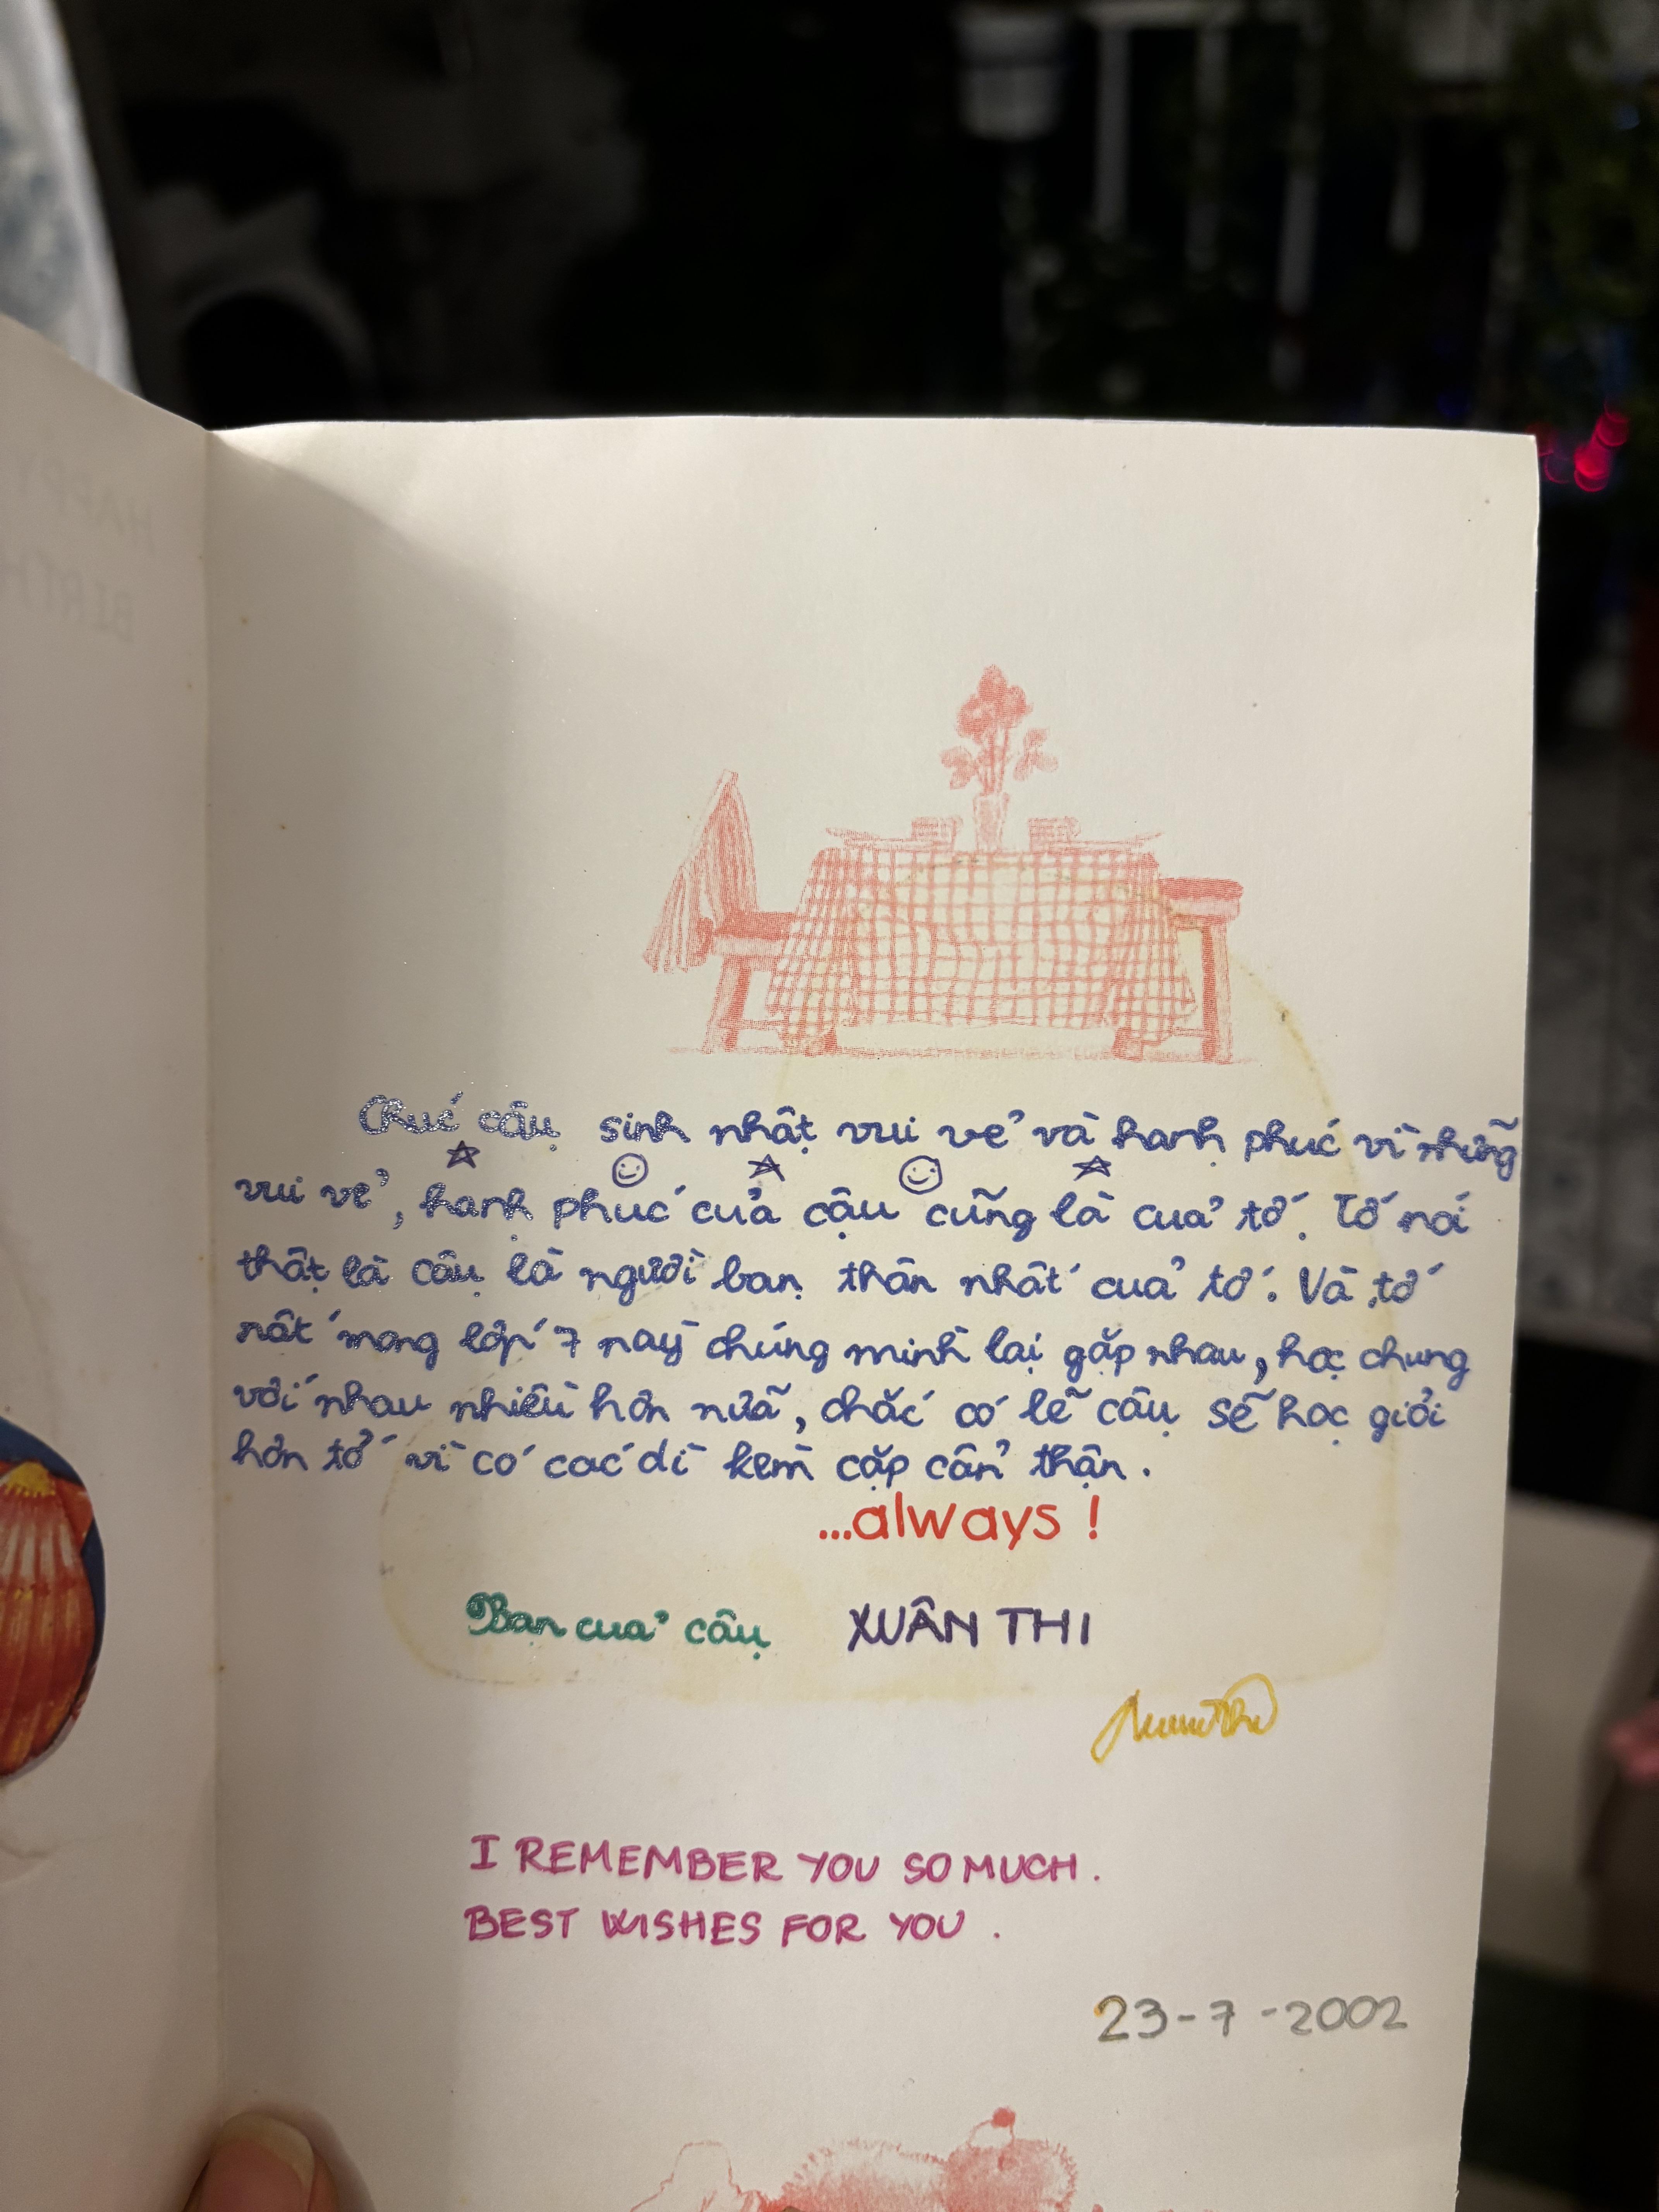 HAPPY
BIRTH
Chúc cậu sinh nhật vui vẻ và hạnh phúc vì những
vui vẻ, hạnh phúc của cậu cũng là của tớ. Tớ nói
thật là cậu là người bạn thân nhất của tớ. Và tớ
rất mong lớp 7 này chúng mình lại gặp nhau, học chung
với nhau nhiều hơn nữa, chắc có lẽ cậu sẽ học giỏi
hơn tớ vì có các dì kèm cặp cẩn thận.
...always !
Bạn của cậu XUÂN THI
I REMEMBER YOU SO MUCH.
BEST WISHES FOR YOU.
23-7-2002